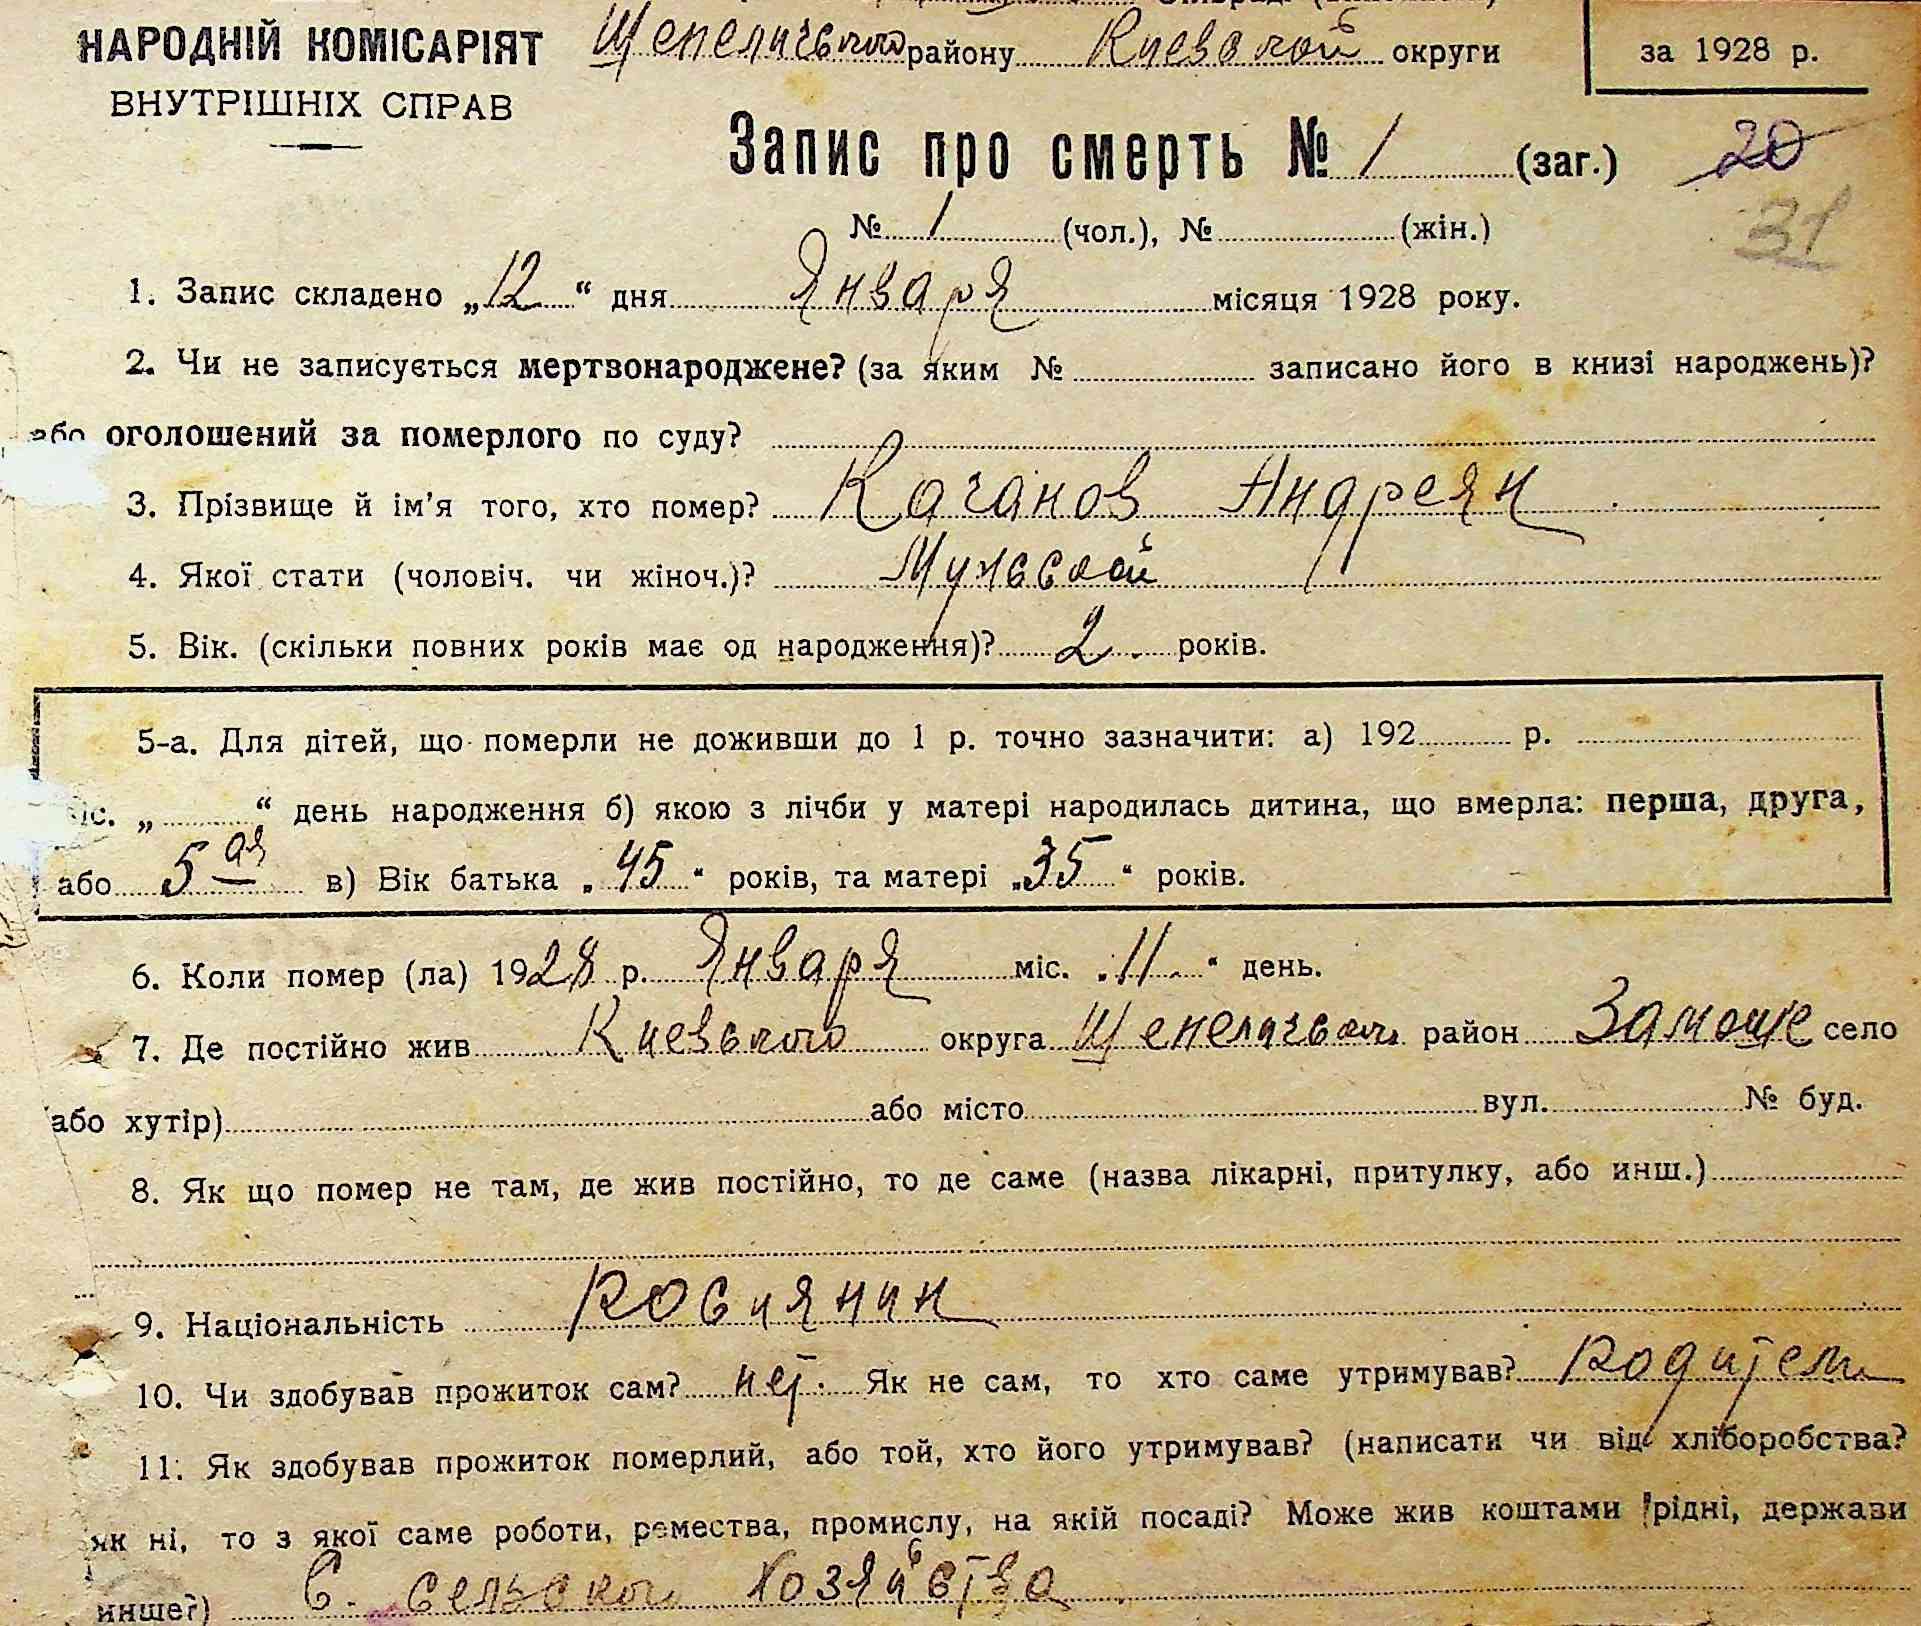 НАРОДНІЙ КОМІСАРІЯТ
ВНУТРІШНІХ СПРАВ
Щепеличского району Киевской округи
за 1928 р.
Запис про смерть № 1 (заг.) 20
31
№ 1 (чол.), № (жін.)
1. Запис складено „12“ дня Января місяця 1928 року.
2. Чи не записується мертвонароджене? (за яким № записано його в книзі народжень)?
або оголошений за померлого по суду?
3. Прізвище й ім'я того, хто помер? Качанов Андреян
4. Якої статі (чоловіч. чи жіноч.)? Мужской
5. Вік. (скільки повних років має од народження)? 2 років.
5-а. Для дітей, що померли не доживши до 1 р. точно зазначити: а) 192 р.
міс. „ “ день народження б) якою з лічби у матері народилась дитина, що вмерла: перша, друга,
або 5ая в) Вік батька „45“ років, та матері „35“ років.
6. Коли помер (ла) 1928 р. Января міс. „11“ день.
7. Де постійно жив Киевского округа Щепеличского район Замоще село
або хутір) або місто вул. № буд.
8. Як що помер не там, де жив постійно, то де саме (назва лікарні, притулку, або инш.)
9. Національність Россиянин
10. Чи здобував прожиток сам? нет. Як не сам, то хто саме утримував? Родители
11. Як здобував прожиток померлий, або той, хто його утримував? (написати чи від хліборобства?
як ні, то з якої саме роботи, ремества, промислу, на якій посаді? Може жив коштами рідні, держави
инше?) С. сельского хозяйства